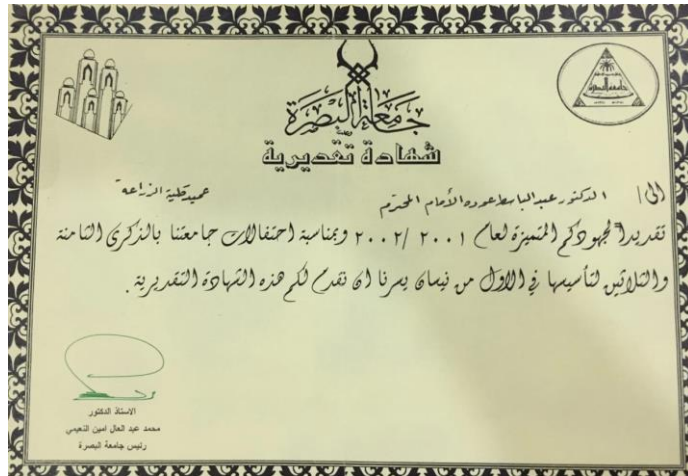 جامعة البصرة
شهادة تقديرية
الى / الدكتور عبد الباسط عوده الأمام المحترم عميد كلية الزراعة
تقديراً لجهودكم المتميزة لعام ٢٠٠١ / ٢٠٠٢ وبمناسبة احتفالات جامعتنا بالذكرى الثامنة
والثلاثين لتأسيسها في الاول من نيسان يسرنا ان نقدم لكم هذه الشهادة التقديرية .
الاستاذ الدكتور
محمد عبد العال امين النعيمي
رئيس جامعة البصرة